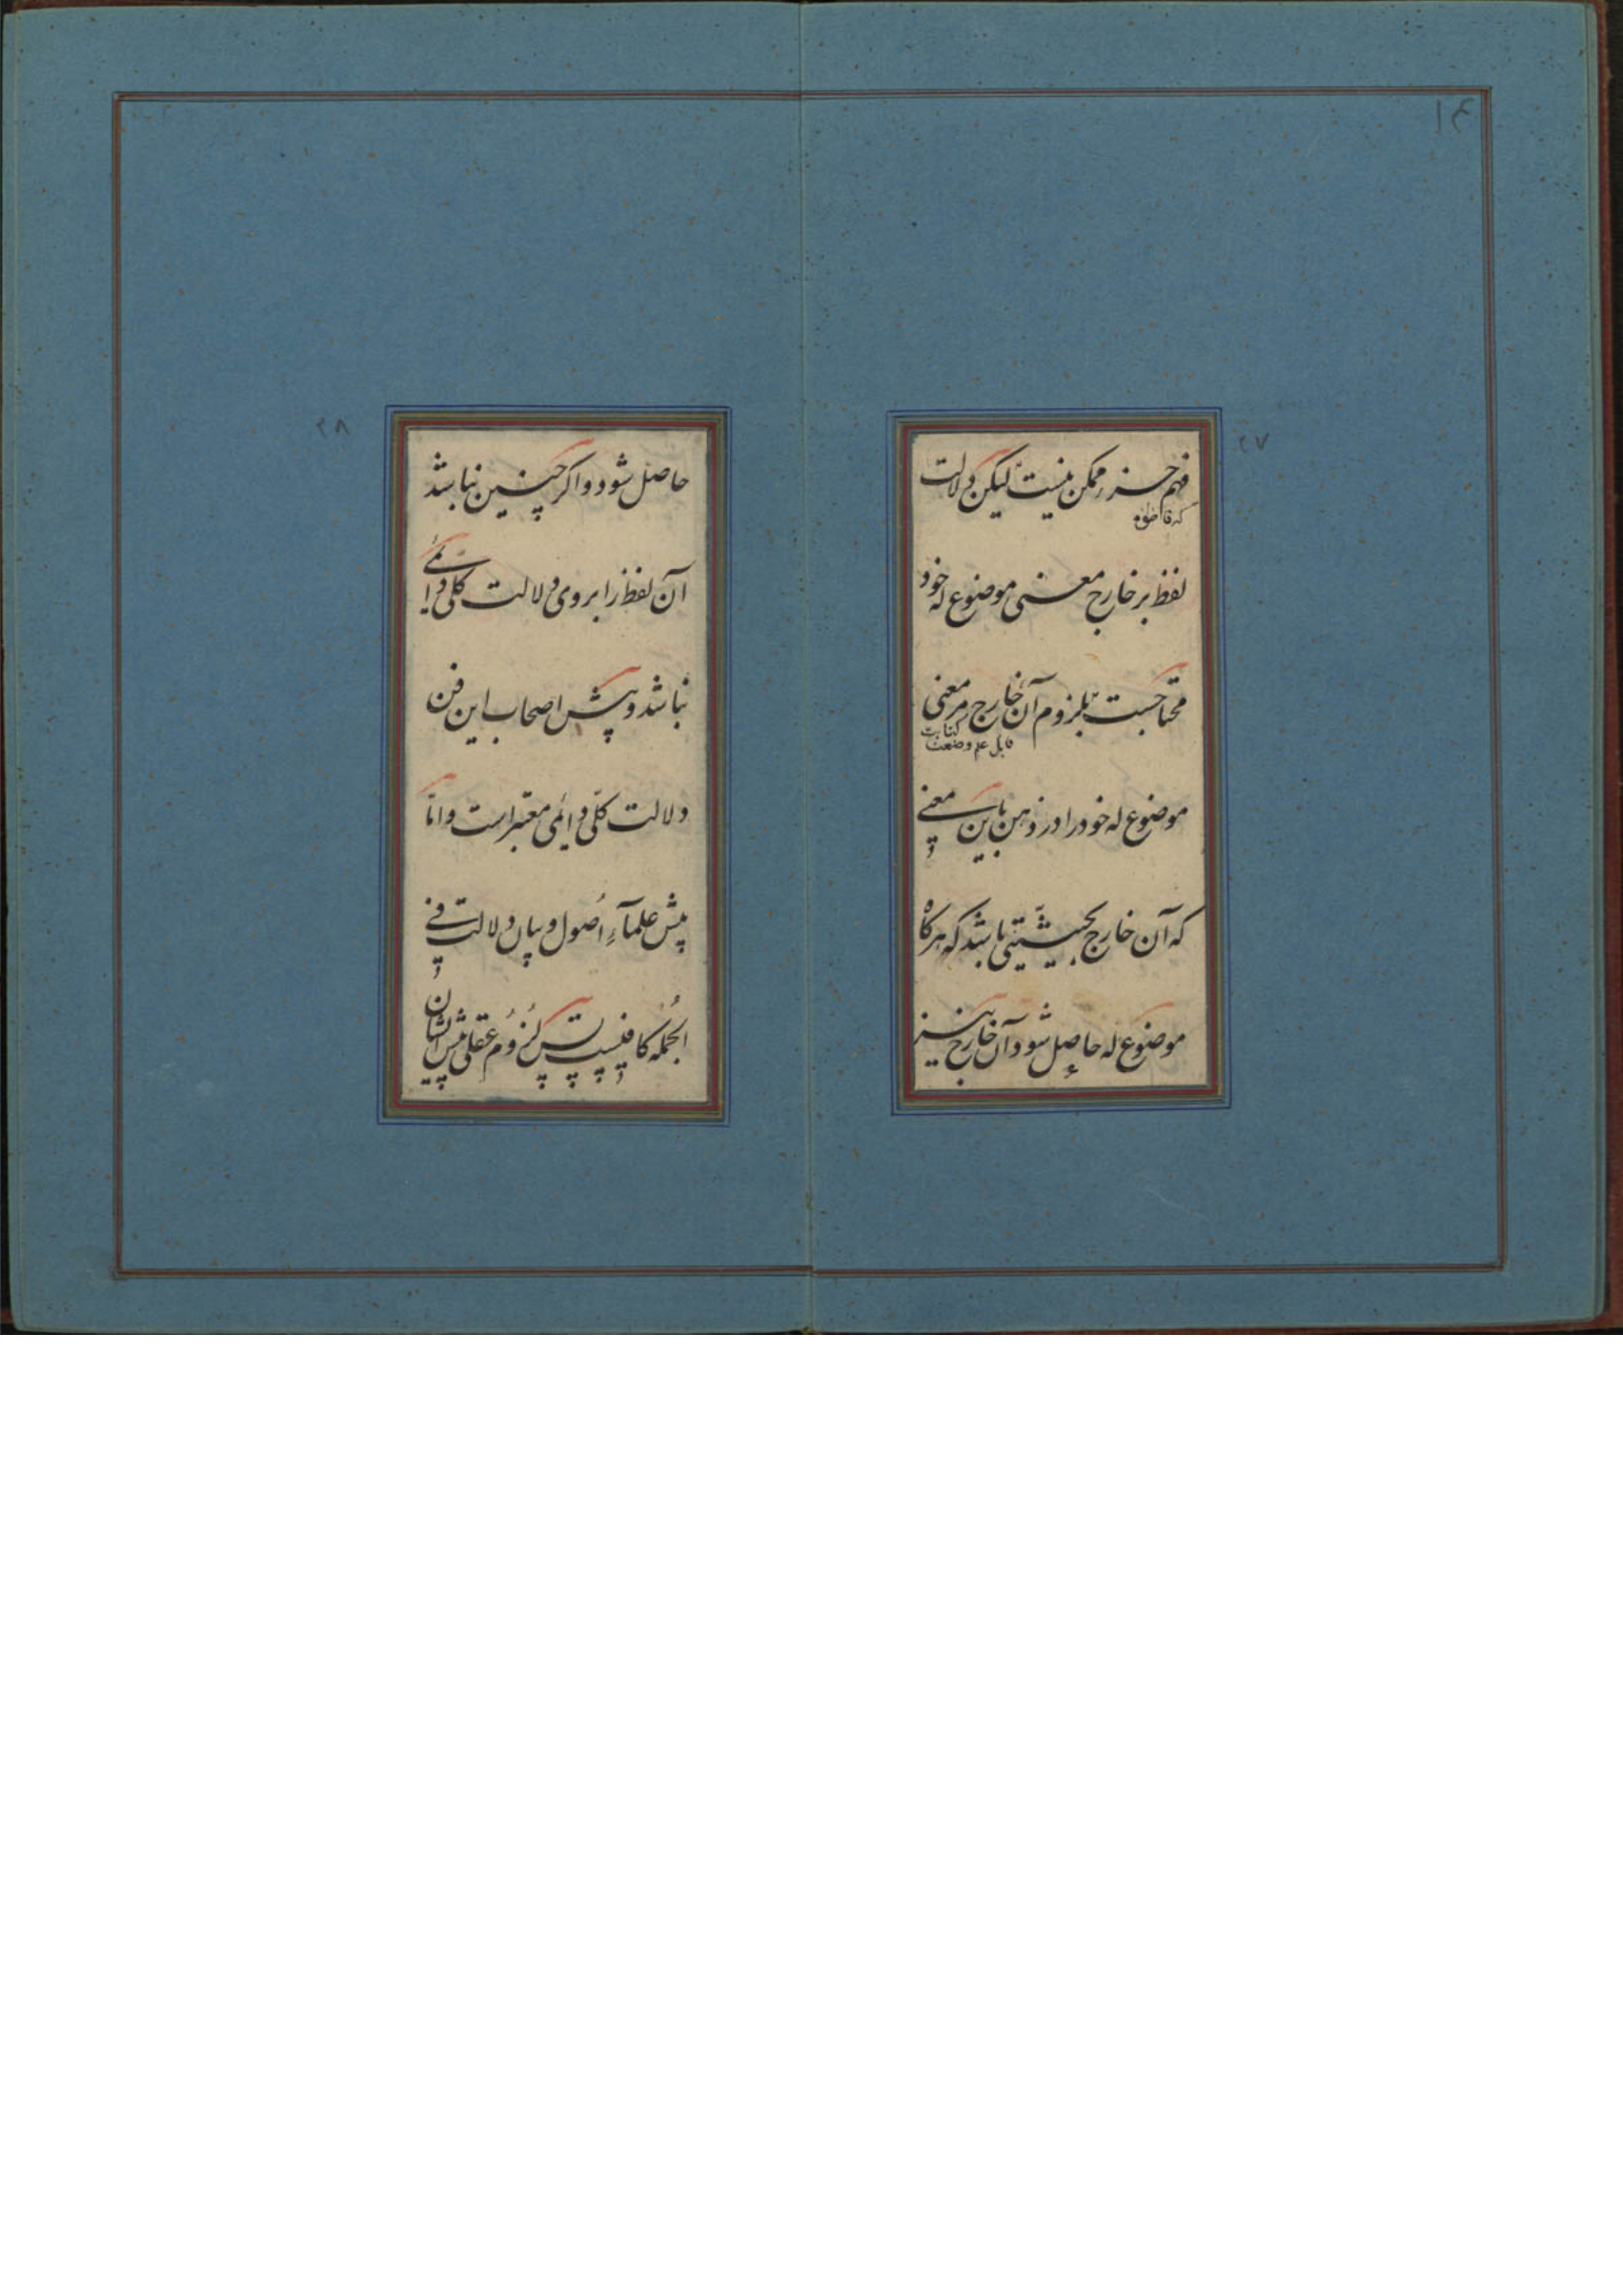 ۲۷
فهم جزء ممکن نیست لیکن دلالت
لفظ بر خارج معنی موضوع له خود
محتاجست بلزوم آن خارج مر معنی
کتابت
قابل علم وصنعت
موضوع له خود را در ذهن باین معنی
که آن خارج بحیثیتی باشد که هرکاه
موضوع له حاصل شود آن خارج نیز
۲۸
حاصل شود و اکر چنین نباشد
آن لفظ را بر وی دلالت کلی دائمی
نباشد و پیش اصحاب این فن
دلالت کلّی دائمی معتبر است و امّا
پیش علمآءِ اُصول و بیان دلالت فی
الجُمله کافیست پس لُزُوم عقلی پیش ایشان